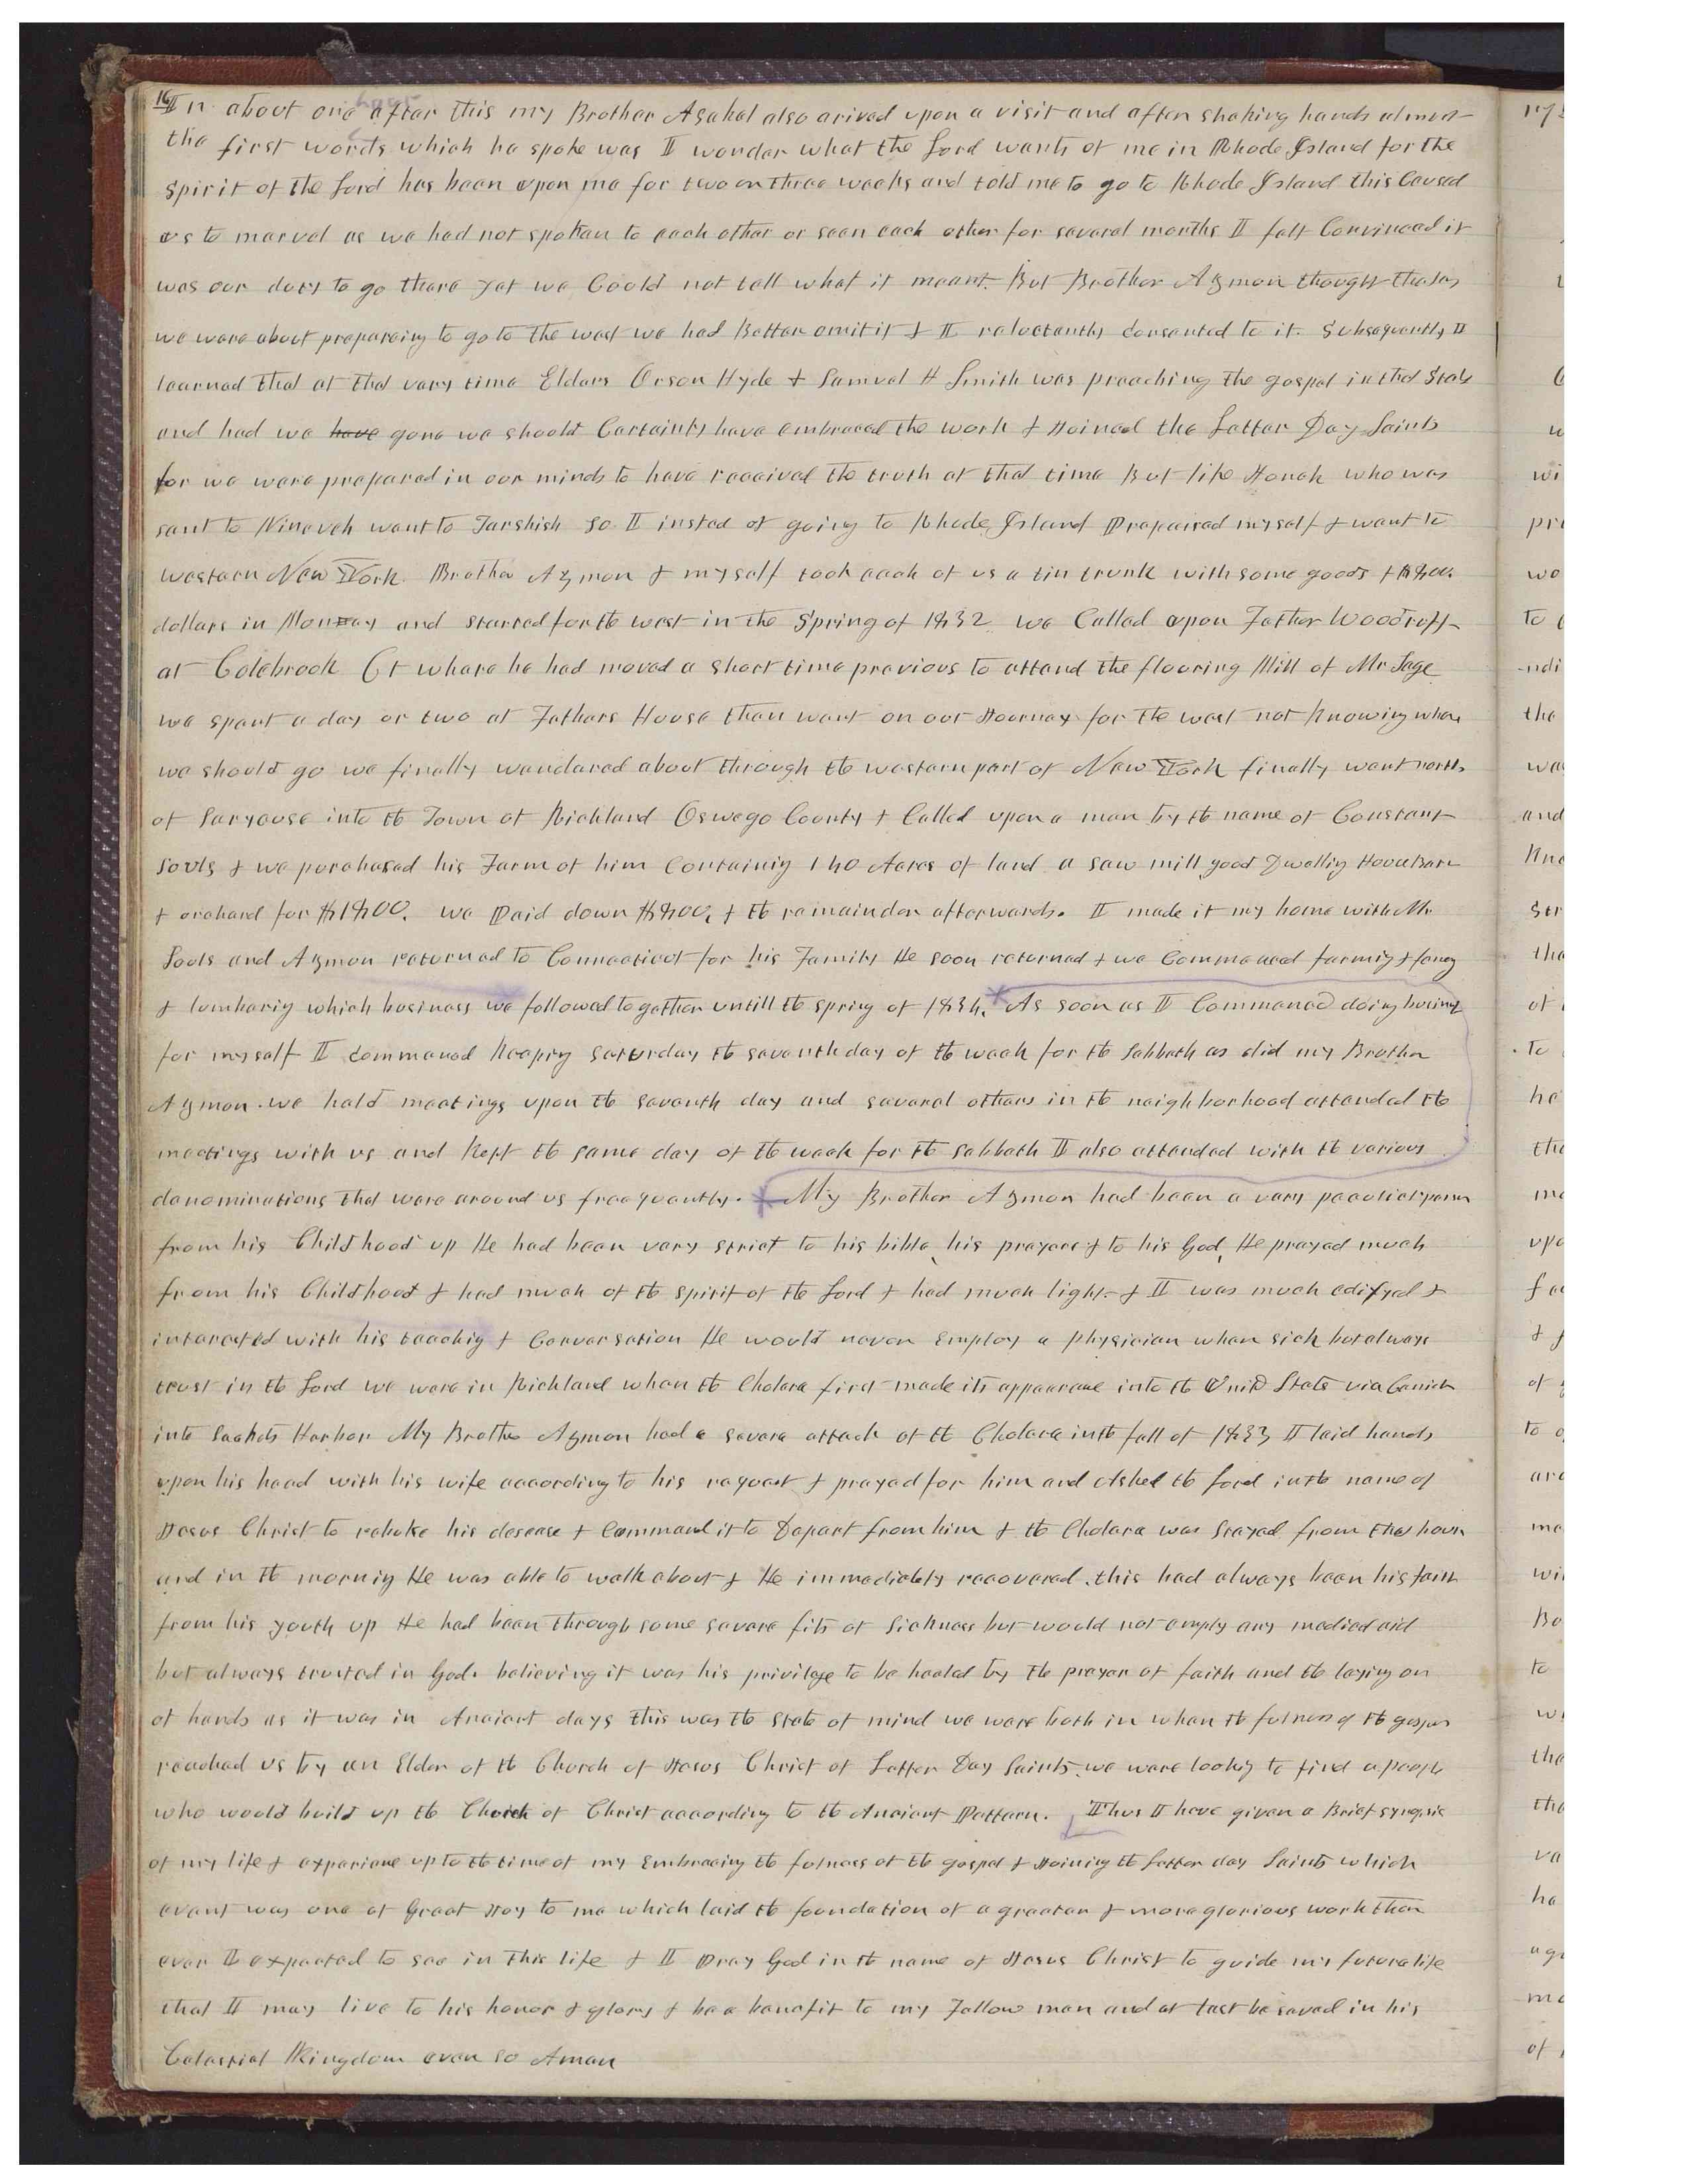 16
In about one hour after this my Brother Asahel also arived upon a visit and after shaking hands almost
the first words which he spoke was I wonder what the Lord wants of me in Rhode Island for the
spirit of the Lord has been upon me for two or three weeks and told me to go to Rhode Island this Caused
us to marvel as we had not spoken to each other or seen each other for several months I felt Convinced it
was our duty to go there yet we Could not tell what it meant. But Brother Azmon thought that as
we were about prepareing to go to the west we had Better omit it & I reluctantly consented to it. Subsequently I
learned that at that very time Elders Orson Hyde & Samuel H Smith was preaching the gospel in that State
and had we have gone we should Certainly have embraced the work & Joined the Latter Day Saints
for we were prepared in our minds to have received the truth at that time But like Jonah who was
sent to Nineveh went to Tarshish so I insted of going to Rhode Island Prepaired myself & went to
western New York. Brother Azmon & myself took each of us a tin trunk with some goods & $800.
dollars in Money and started for the west in the Spring of 1832 we Called upon Father Woodruff
at Colebrook Ct where he had moved a short time previous to attend the flouring Mill of Mr Sage
we spent a day or two at Fathers House then went on our Journey for the west not Knowing where
we should go we finally wandered about through the western part of New York finally went north
of Saryouse into the Town of Richland Oswego County & Called upon a man by the name of Constant
Souls & we purchased his Farm of him Containing 140 Acres of land a saw mill, good Dwelling House Barn
& orchard for $1800. we Paid down $800, & the remainder afterwards. I made it my home with Mr
Souls and Azmon returned to Connecticut for his Family He soon returned & we Commenced farming & fency
& lumbering which business we followed together untill the spring of 1834. As soon as I Commenced doing business
for myself I commenced Keeping saturday the seventh day of the week for the Sabbath as did my Brother
Azmon. we held meetings upon the seventh day and several others in the neighborhood attended the
meetings with us and Kept the same day of the week for the Sabbath I also attended with the various
denominations that were around us freequantly. My Brother Azmon had been a very peculier person
from his Childhood up He had been very strict to his bible, his prayers & to his God, He prayed much
from his Childhood & had much of the spirit of the Lord & had much light. & I was much edifyed &
interested with his teaching & Conversation He would never employ a physician when sick but always
trust in the Lord we were in Richland when the Cholera first made its appearance into the Unitd States via Canida
into Sackets Harbor My Brother Azmon had a severe attack of the Cholera in the fall of 1833 I laid hands
upon his head with his wife according to his request & prayed for him and Asked the Lord in the name of
Jesus Christ to rebuke his desease & Command it to Depart from him & the Cholera was stayed from that hour
and in the morning He was able to walk about & He immediately recovered. this had always been his faith
from his youth up He had been through some severe fits of Sickness but would not employ any medical aid
but always trusted in God. believing it was his privilege to be healed by the prayer of faith and the laying on
of hands as it was in Ancient days this was the state of mind we were both in when the fulness of the gospel
reached us by an Elder of the Church of Jesus Christ of Latter Day Saints. we were looking to find a people
who would build up the Church of Christ according to the Ancient Pattern. Thus I have given a Brief synopsis
of my life & experience up to the time of my Embracing the fulness of the gospel & Joining the Latter day Saints which
event was one of Great Joy to me which laid the foundation of a greater & more glorious work than
ever I expected to see in this life & I Pray God in the name of Jesus Christ to guide my future life
that I may live to his honor & glory & be a benefit to my Fellow men and at last be saved in his
Celestial Kingdom even so Amen